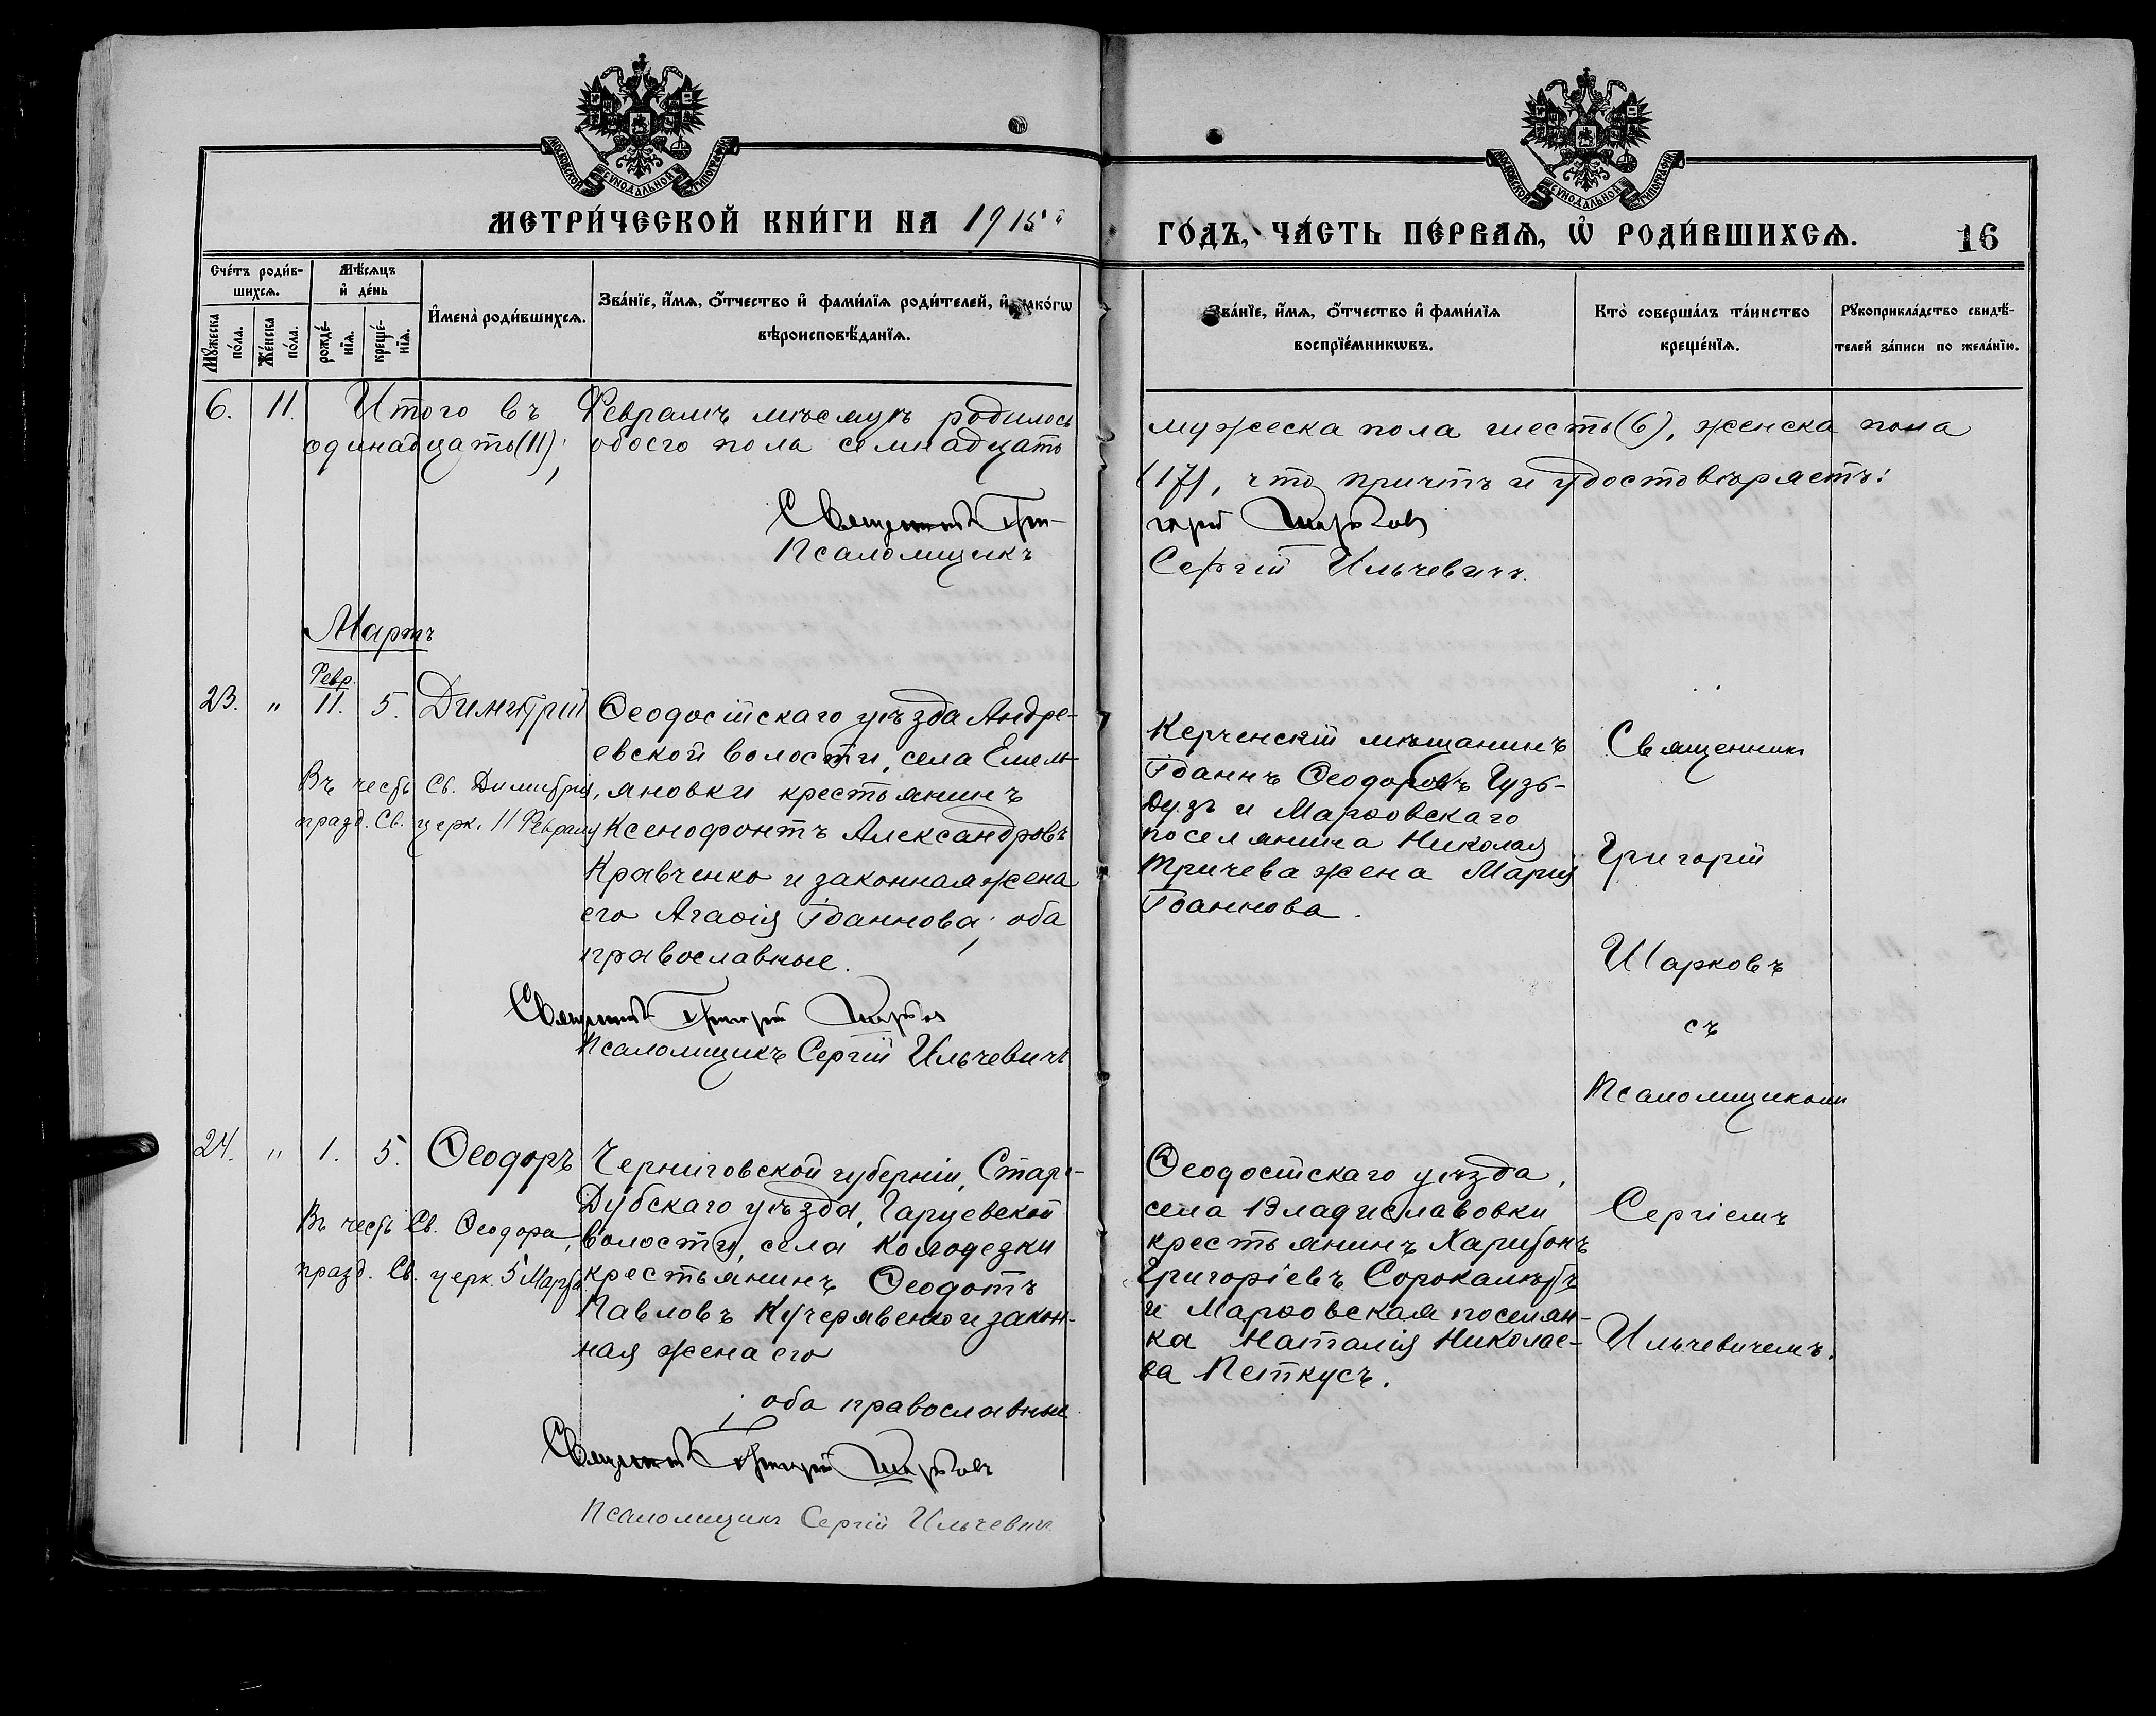 МОСКОВСКОЙ СѴНОДАЛЬНОЙ ТИПОГРАФІИ
МОСКОВСКОЙ СѴНОДАЛЬНОЙ ТИПОГРАФІИ
МЕТРИ́ЧЕСКОЙ КНИ́ГИ НА 1915й
ГО́ДЪ, ЧА́СТЬ ПЕ́РВАѦ, Ѡ҆ РОДИ́ВШИХСѦ. 16
Сче́тъ роди́в-
шихсѧ.
Мꙋ́жеска
по́ла.
Же́нска
по́ла.
Мѣ́сѧцъ
и҆ де́нь
рожде́-
нїѧ.
креще́-
нїѧ.
И҆мена̀ роди́вшихсѧ.
Зва́нїе, и҆́мѧ, ѻ҆́тчество и҆ фами́лїѧ роди́телей, и҆ како́гѡ
вѣроисповѣ́данїѧ.
Зва́нїе, и҆́мѧ, ѻ҆́тчество и҆ фами́лїѧ
воспрїе́мникѡвъ.
Кто̀ соверша́лъ та́инство
креще́нїѧ.
Рꙋкоприкла́дство свидѣ́-
телей за́писи по жела́нїю.
6. 11. Итого въ Февралѣ мѣсяцѣ родилось
одинадцать(11); обоего пола семнадцать
мужеска пола шесть(6), женска пола
(17), что причтъ и удостовѣряетъ:
Священникъ Гри-
горій Шарковъ
Псаломщикъ
Сергій Ильчевичъ.
Мартъ
23. " Февр. 11. 5. Димитрій
Въ честь Св. Димитрія,
празд. Св. церк. 11 Февраля
Ѳеодосійскаго уѣзда Андре-
евской волости, села Емель-
яновки крестьянинъ
Ксенофонтъ Александровъ
Кравченко и законная жена
его Агаѳія Іоаннова; оба
православные.
Священникъ Григорій Шарковъ
Псаломщикъ Сергій Ильчевичъ
Керченскій мѣщанинъ
Іоаннъ Ѳеодоровъ Гузь-
Дузъ и Марѳовскаго
поселянина Николая
Тричева жена Марія
Іоаннова.
Священникъ
Григорій
Шарковъ
съ
Псаломщикомъ
Сергіемъ
Ильчевичемъ.
24. " 1. 5. Ѳеодоръ
Въ честь Св. Ѳеодора,
празд. Св. церк. 5 Марта.
Черниговской губерніи, Старо-
Дубскаго уѣзда, Гарцевской
волости, села Колодезки
крестьянинъ Ѳеодотъ
Павловъ Кучерявенко и закон-
ная жена его
; оба православные.
Священникъ Григорій Шарковъ
Псаломщикъ Сергій Ильчевичъ
Ѳеодосійскаго уѣзда,
села Владиславовки
крестьянинъ Харитонъ
Григоріевъ Сорокалѣтъ
и Марѳовская поселян-
ка Наталія Николае-
ва Петкусъ.